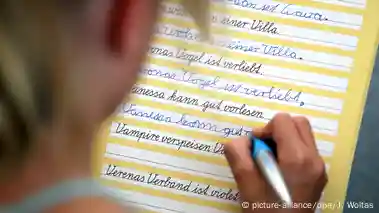 einer Villa
einer Villa.
onas Vogel ist verliebt.
onas Vogel ist verliebt.
Vanessa kann gut vorlesen
Vanessa kann gut
Vampire verspeisen
Verenas Verband ist violet
© picture-alliance/dpa/J. Woitas